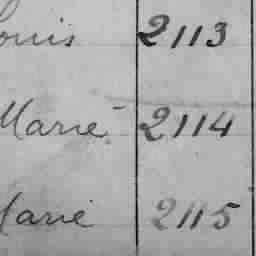 ouis 2113
Marie 2114
Marie 2115